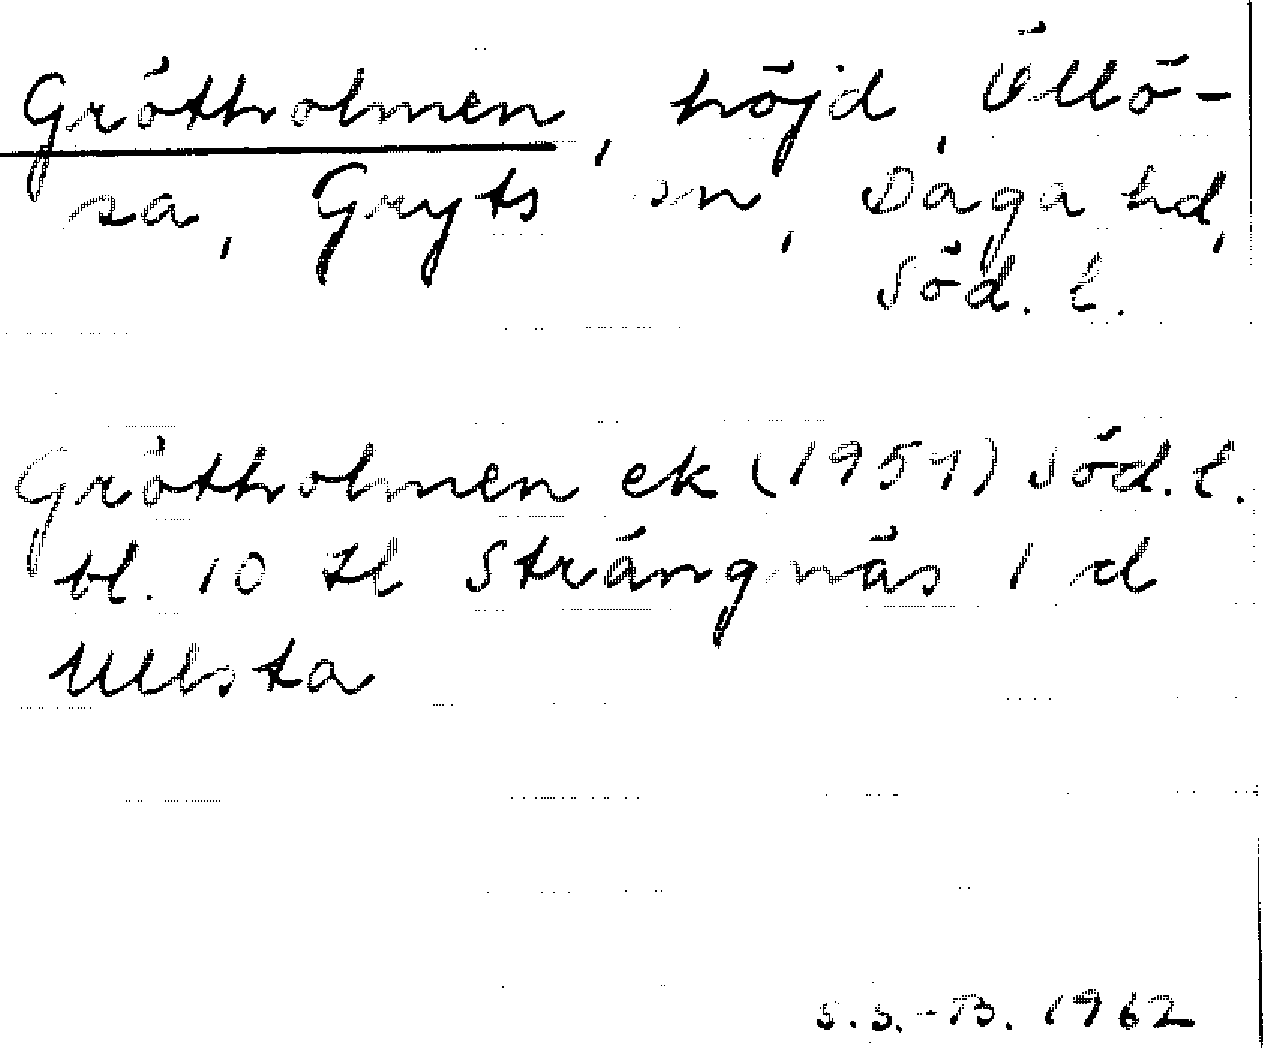 Grötholmen, höjd, Ullö-
sa, Gryts sn, Daga hd,
Söd. l.
Grötholmen ek (1951) Söd. l.
bl. 10 tl Strängnäs 1 d
Ullsta
S.S.-B. 1962